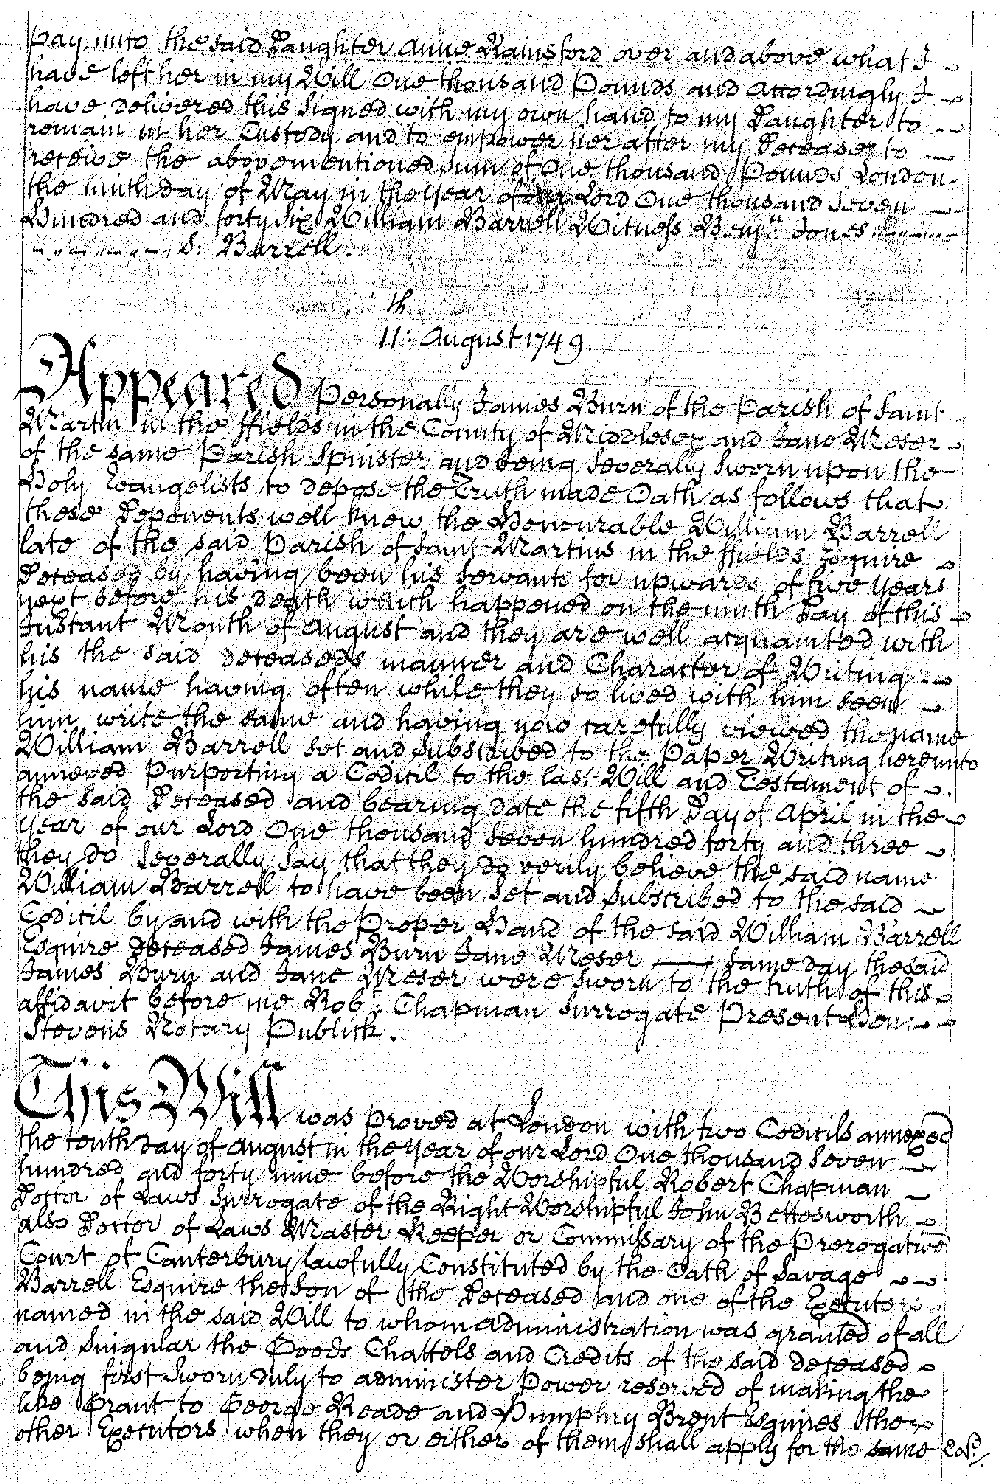 pay unto the said Daughter Anne Rainsford over and above what I
have left her in my Will One thousand Pounds and Accordingly I
have delivered this Signed with my own hand to my Daughter to
remain in her Custody and to empower her after my Decease to
receive the abovementioned Sum of One thousand Pounds London
the ninth day of May in the year of our Lord One thousand Seven
Hundred and forty Six William Barrell Witness Benj.n Jones
S. Barrell.
11th August 1749
Appeared Personally James Burn of the Parish of Saint
Martin in the ffields in the County of Middlesex and Jane Meser
of the same Parish Spinster and being Severally Sworn upon the
Holy Evangelists to depose the Truth made Oath as follows that
these Deponents well knew the Honourable William Barrell
late of the said Parish of Saint Martins in the ffields Esquire
Deceased by having been his Servants for upwards of two years
next before his death which happened on the ninth Day of this
Instant Month of August and they are well acquainted with
his the said deceaseds manner and Character of Writing
his name having often while they so lived with him seen
him write the same and having now carefully viewed the name
William Barrell set and subscribed to the Paper Writing hereunto
annexed Purporting a Codicil to the last Will and Testament of
the said Deceased and bearing date the fifth Day of April in the
year of our Lord One thousand Seven hundred forty and three
they do Severally Say that they do verily believe the said name
William Barrell to have been Set and Subscribed to the said
Codicil by and with the Proper Hand of the said William Barrell
Esquire Deceased James Burn Jane Meser Same day the said
James Burn and Jane Meser were Sworn to the truth of this
affidavit before me Rob.t Chapman Surrogate Present
Stevens Notary Publick.
This Will was proved at London with two Codicils annexed
the tenth Day of August in the year of our Lord One thousand Seven
hundred and forty nine before the Worshipful Robert Chapman
Doctor of Laws Surrogate of the Right Worshipful John Bettesworth
also Doctor of Laws Master Keeper or Commissary of the Prerogative
Court of Canterbury lawfully Constituted by the Oath of Savage
Barrell Esquire the Son of the Deceased and one of the Executors
named in the said Will to whom administration was granted of all
and Singular the Goods Chattels and Credits of the said deceased
being first Sworn duly to administer Power reserved of making the
like Grant to George Reade and Humphry Brent Esquires the
other Executors when they or either of them shall apply for the same